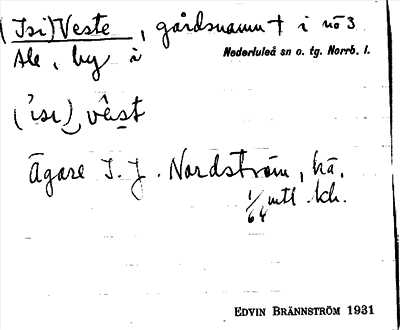 (Isi)Veste, gårdsnamn † i nö3
Ale, by i
Nederluleå sn o. tg. Norrb. l.
('ısı) vêst
Ägare I. J. Nordström, hä.
1/64 mtl. kh.
EDVIN BRÄNNSTRÖM 1931